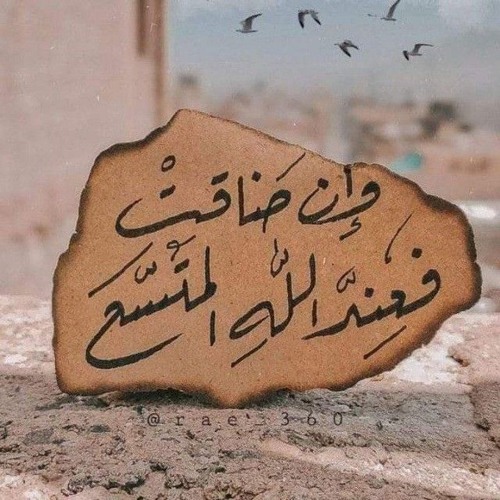 وَإن ضاقتْ
فَعِندَّ اللَّهِ المُتسَّع
@rae_360